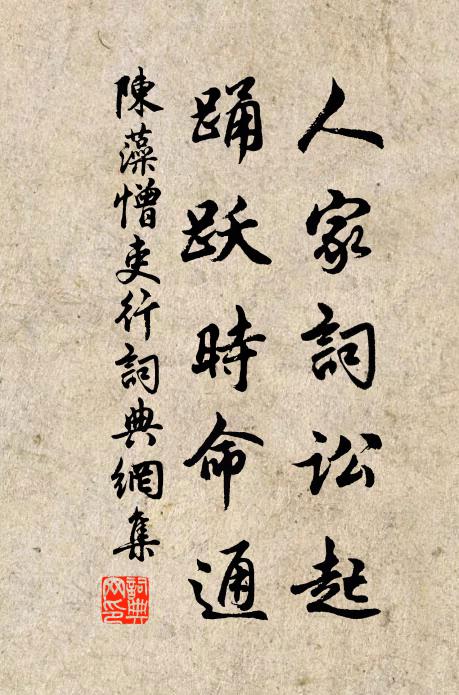 人家詞訟起
踊跃時命通
陳藻憎吏行詞典網集
詞典